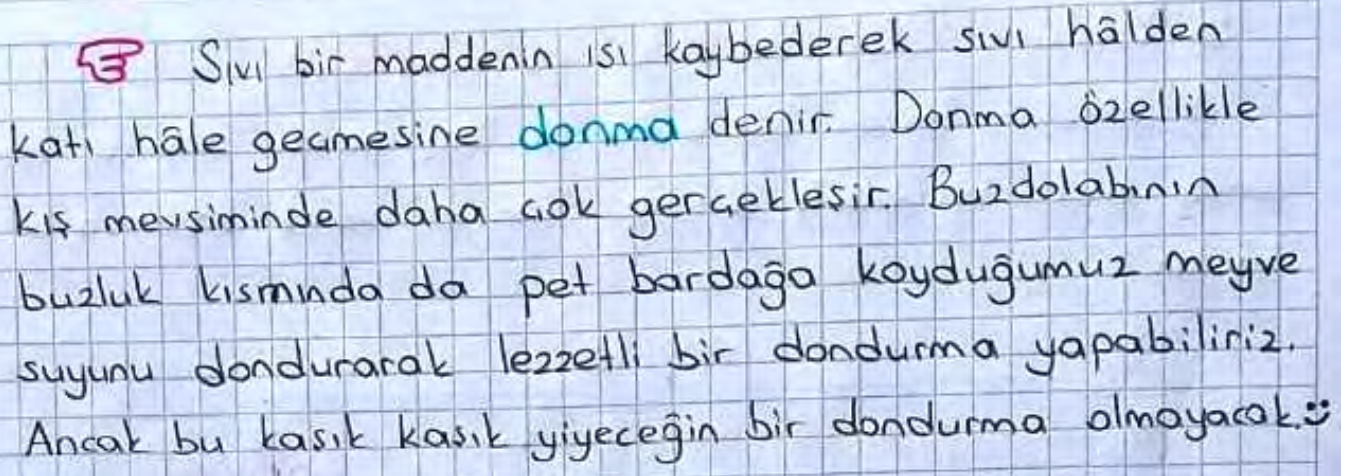 ☞ Sıvı bir maddenin ısı kaybederek sıvı hâlden
katı hâle geçmesine donma denir. Donma özellikle
kış mevsiminde daha çok gerçekleşir. Buzdolabının
buzluk kısmında da pet bardağa koyduğumuz meyve
suyunu dondurarak lezzetli bir dondurma yapabiliriz.
Ancak bu kaşık kaşık yiyeceğin bir dondurma olmayacak.☺